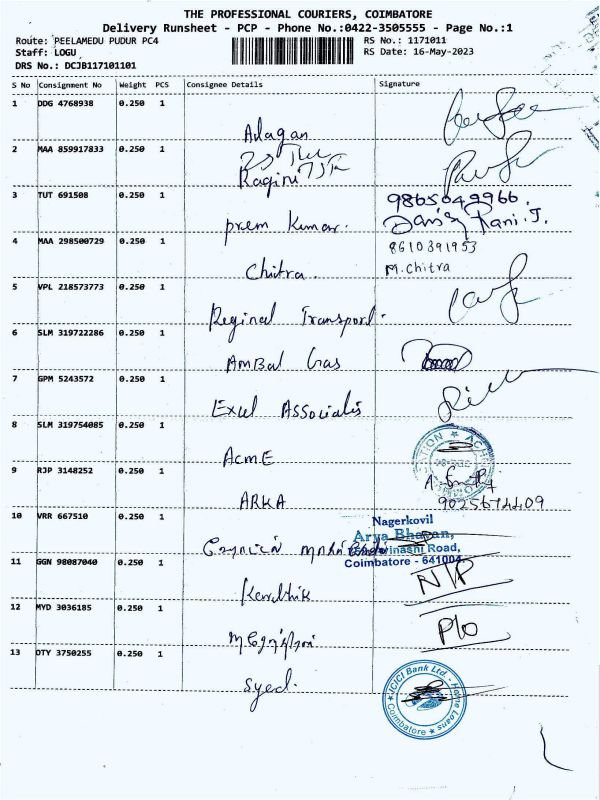 THE PROFESSIONAL COURIERS, COIMBATORE
Delivery Runsheet - PCP - Phone No.:0422-3505555 - Page No.:1
Route: PEELAMEDU PUDUR PC4
Staff: LOGU
DRS No.: DCJB117101101
RS No.: 1171011
RS Date: 16-May-2023
S No Consignment No Weight PCS Consignee Details Signature
1 DDG 4768938 0.250 1
Alagan
2 MAA 859917833 0.250 1
Ragini
3 TUT 691508 0.250 1
prem Kumar.
Rani.J.
4 MAA 298500729 0.250 1
8610391953
Chitra.
M.Chitra
5 VPL 218573773 0.250 1
Reginal Transport.
6 SLM 319722286 0.250 1
AmBal Gas
7 GPM 5243572 0.250 1
Excel Associalis
8 SLM 319754085 0.250 1
AcmE
9 RJP 3148252 0.250 1
ARKA
10 VRR 667510 0.250 1
Nagerkovil
Arya Bhavan,
Road,
Coimbatore - 641004.
11 GGN 98087040 0.250 1
Karthik
N/P
12 MYD 3036185 0.250 1
P/o
13 OTY 3750255 0.250 1
Syed.
ICICI Bank Ltd. - Home Loans
Coimbatore